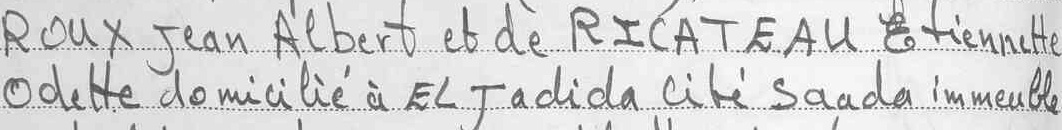 Roux Jean Albert et de RICATEAU Etiennette
Odette domicilié à EL Jadida cité Saada immeuble